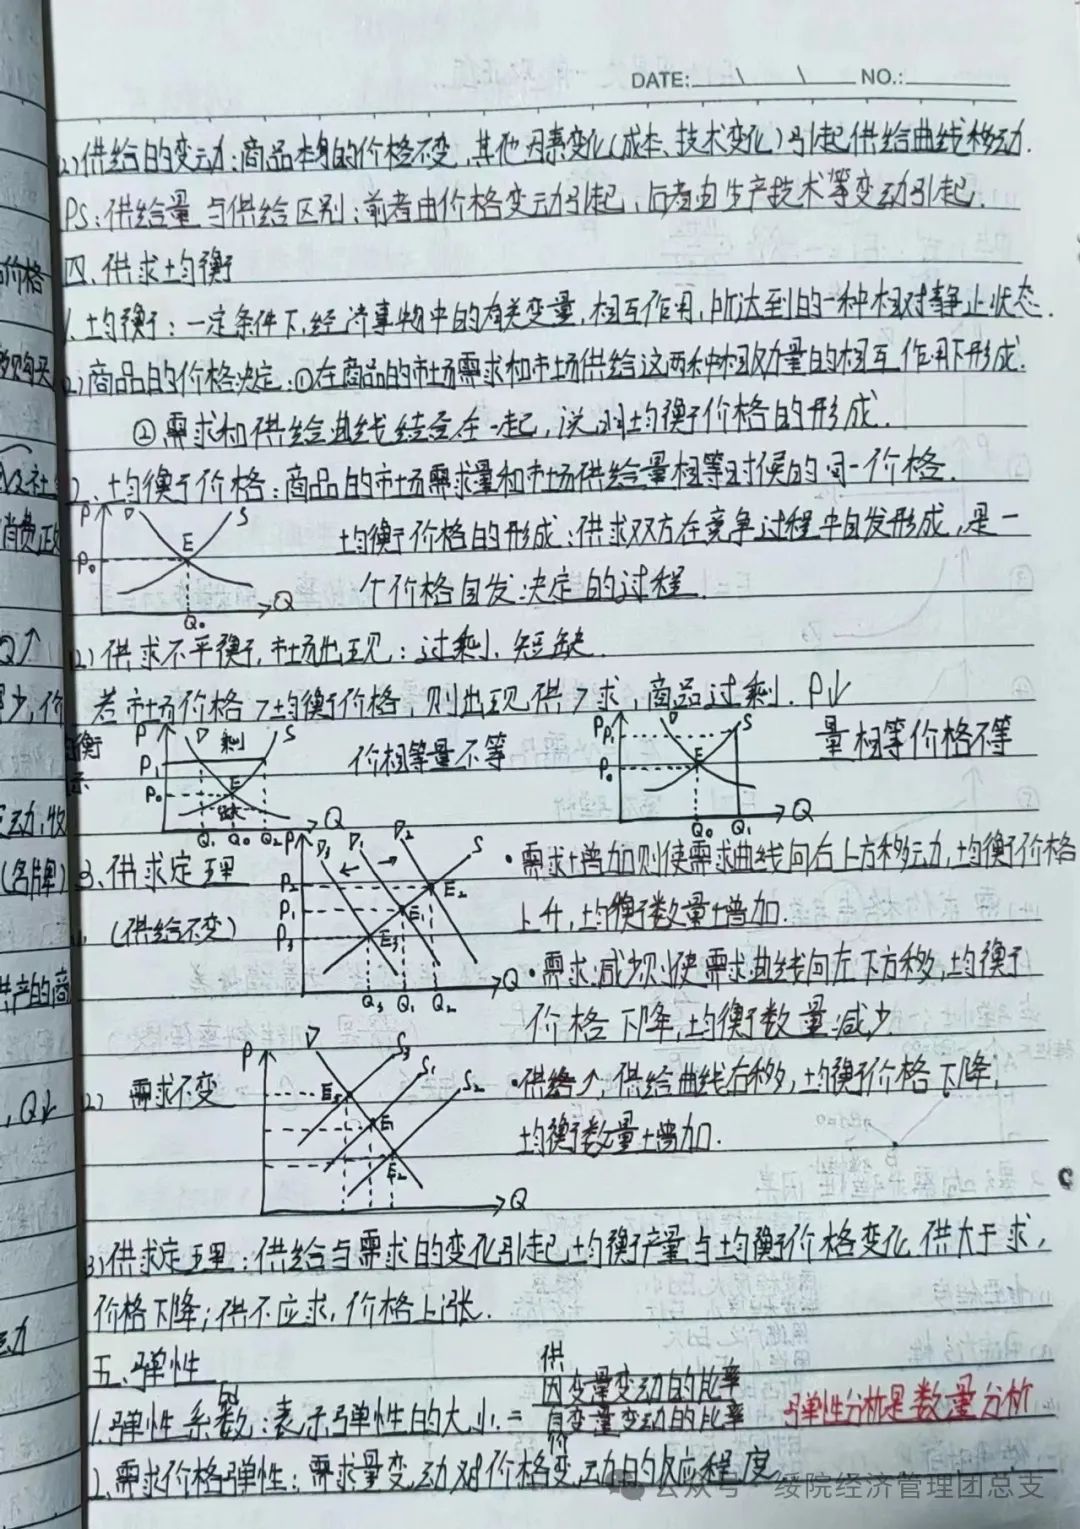 DATE: \ \ NO.:
(2)供给的变动:商品本身的价格不变,其他因素变化(成本、技术变化)引起供给曲线移动.
PS:供给量与供给区别:前者由价格变动引起;后者由生产技术等变动引起.
四、供求均衡
1.均衡:一定条件下,经济事物中的有关变量,相互作用,所达到的一种相对静止状态.
(2)商品的价格决定:①在商品的市场需求和市场供给这两种相反力量的相互作用下形成.
②需求和供给曲线结合在一起,说明均衡价格的形成.
2.均衡价格:商品的市场需求量和市场供给量相等时候的同一价格.
均衡价格的形成:供求双方在竞争过程中自发形成,是一
个价格自发决定的过程.
P D S E P₀ Q₀ Q
(2)供求不平衡,市场出现:过剩、短缺.
若市场价格>均衡价格,则出现供>求,商品过剩.P↓
P D 剩 S P₁ P₀ E 缺 Q₁ Q₀ Q₂ Q
价相等量不等
P D S P₁ P₀ E Q₀ Q₁ Q
量相等价格不等
3.供求定理
(1)(供给不变)
P D₃ D₁ D₂ S P₂ P₁ P₃ E₂ E₁ E₃ Q₃ Q₁ Q₂ Q
·需求增加则使需求曲线向右上方移动,均衡价格
上升,均衡数量增加.
·需求减少则使需求曲线向左下方移,均衡
价格下降,均衡数量减少
(2) 需求不变
P D S₃ S₁ S₂ E₃ E₁ E₂ Q
·供给↑,供给曲线右移,均衡价格下降;
均衡数量增加.
(3)供求定理:供给与需求的变化引起均衡产量与均衡价格变化 供大于求,
价格下降;供不应求,价格上涨.
五、弹性
供
1.弹性系数:表示弹性的大小.=因变量变动的比率
自变量变动的比率
价
弹性分析是数量分析
2.需求价格弹性:需求量变动对价格变动的反应程度
公众号·绥院经济管理团总支
价格
购买
及社会
消费正
Q↑
少,价
均衡
变动;收
(名牌)
共产的商
,Q↓